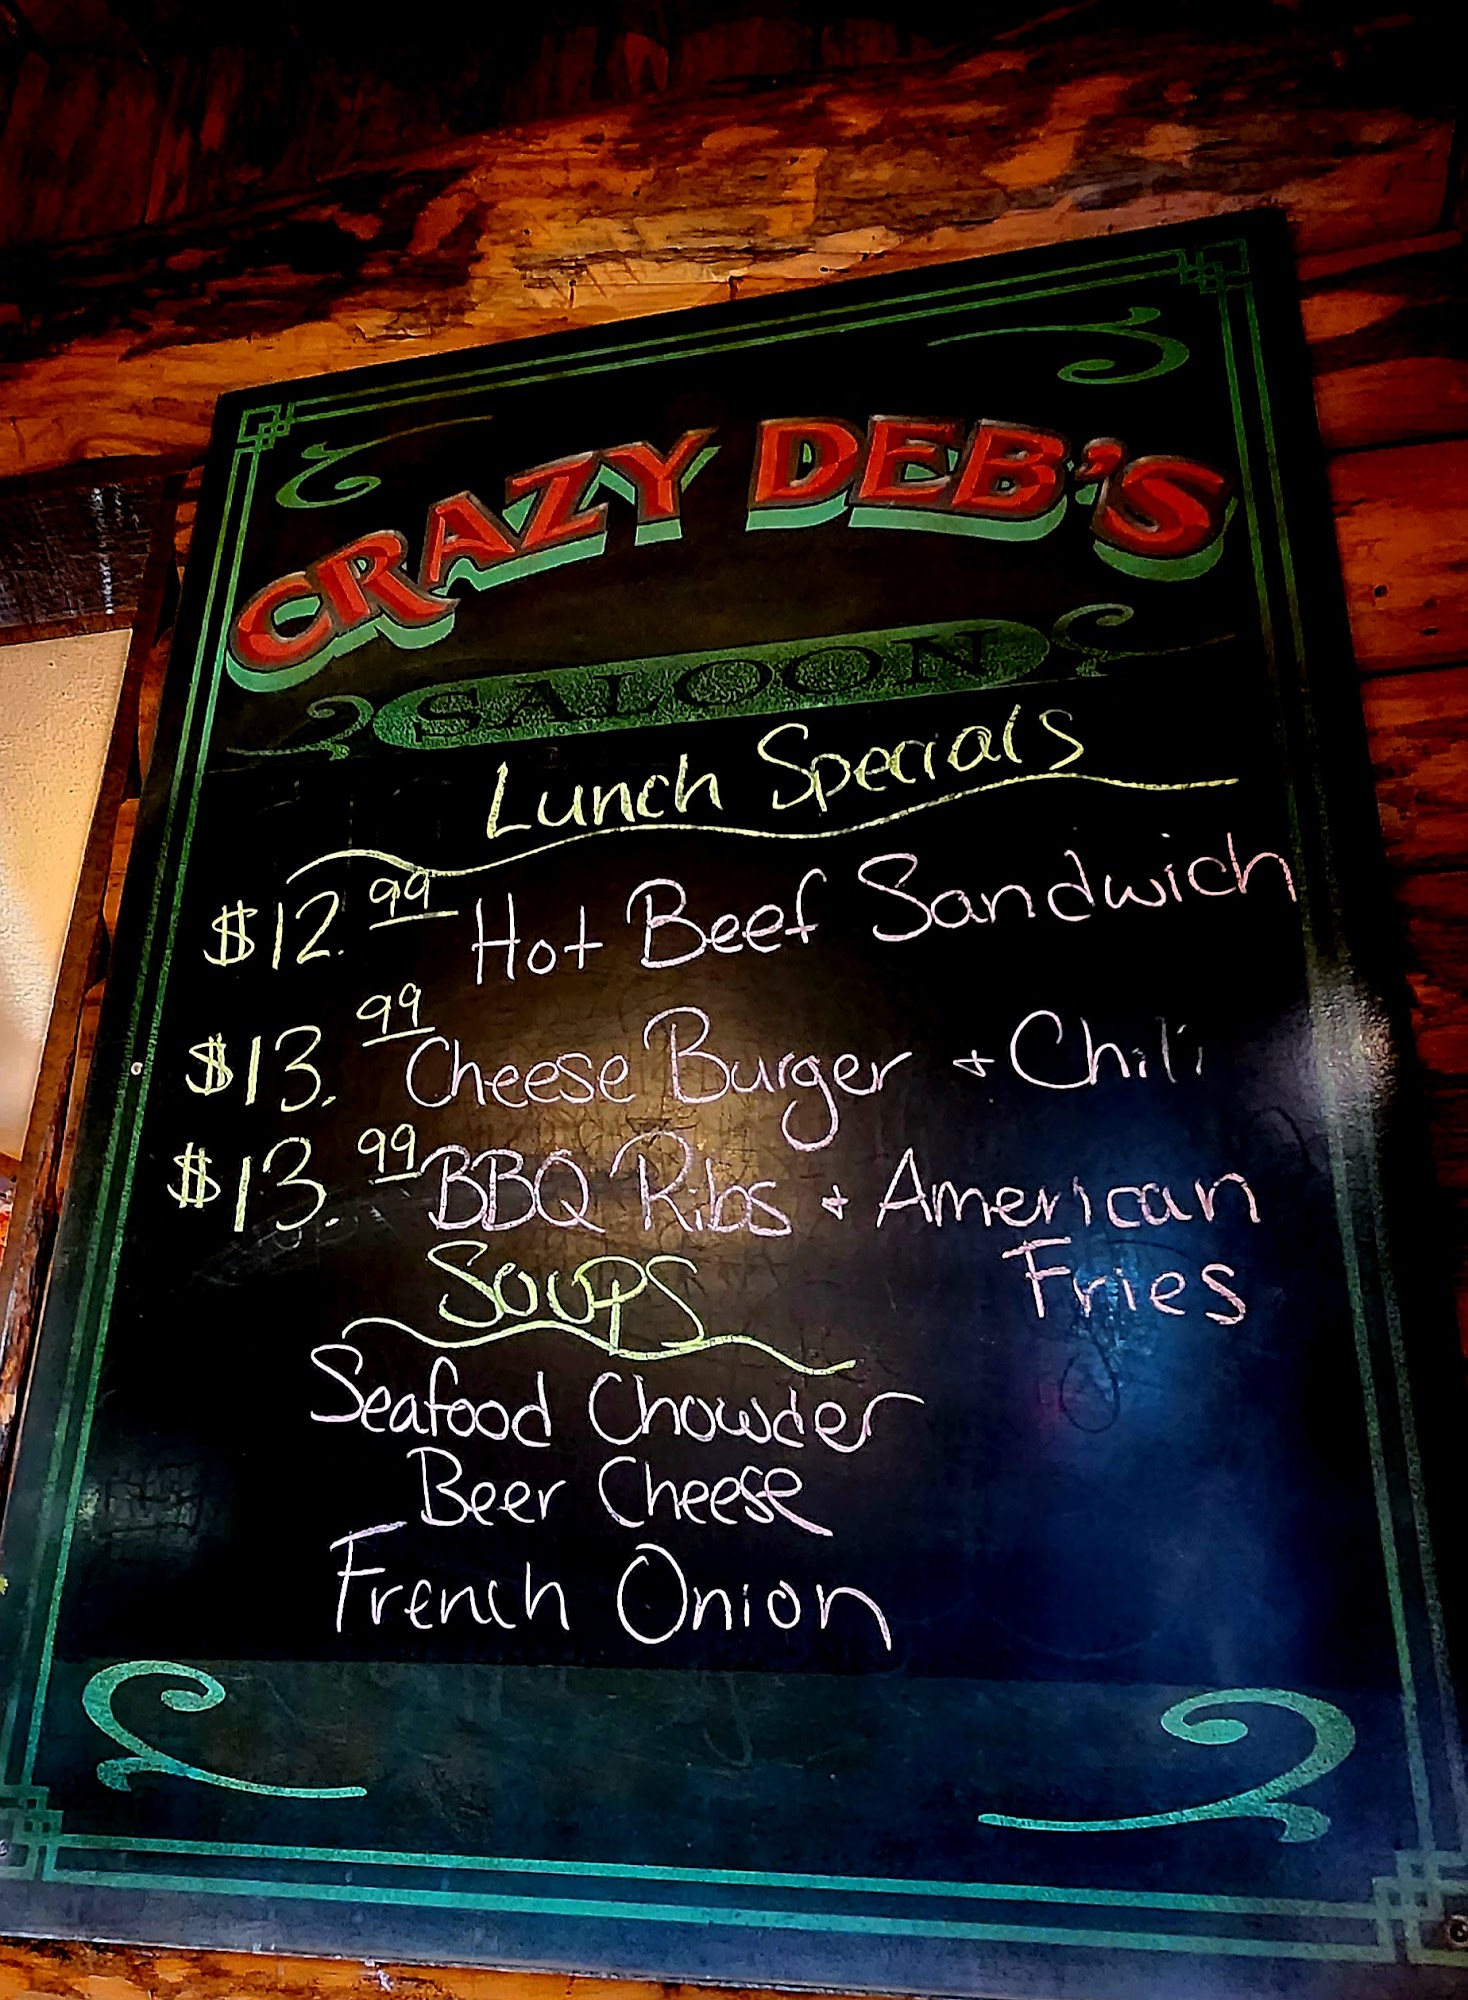 CRAZY DEB'S
SALOON
Lunch Specials
$12.99 Hot Beef Sandwich
$13.99 Cheese Burger + Chili
$13.99 BBQ Ribs + American
Fries
Soups
Seafood Chowder
Beer Cheese
French Onion